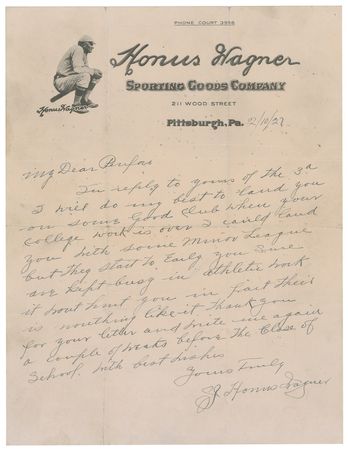 PHONE COURT 3956
Honus Wagner
SPORTING GOODS COMPANY
211 WOOD STREET
Pittsburgh, Pa. 12/10/27
Honus Wagner
My Dear
In reply to yours of the 3d
I will do my best to land you
on some Good Club when your
College work is over I could land
you with some Minor League
but they start to Early you sure
are Kept busy in athletic work
it wont hurt you in fact their
is nouthing like it Thank you
for your letter and write me again
a couple of weeks before the Close of
School. With best wishes
Yours Truly
J Honus Wagner